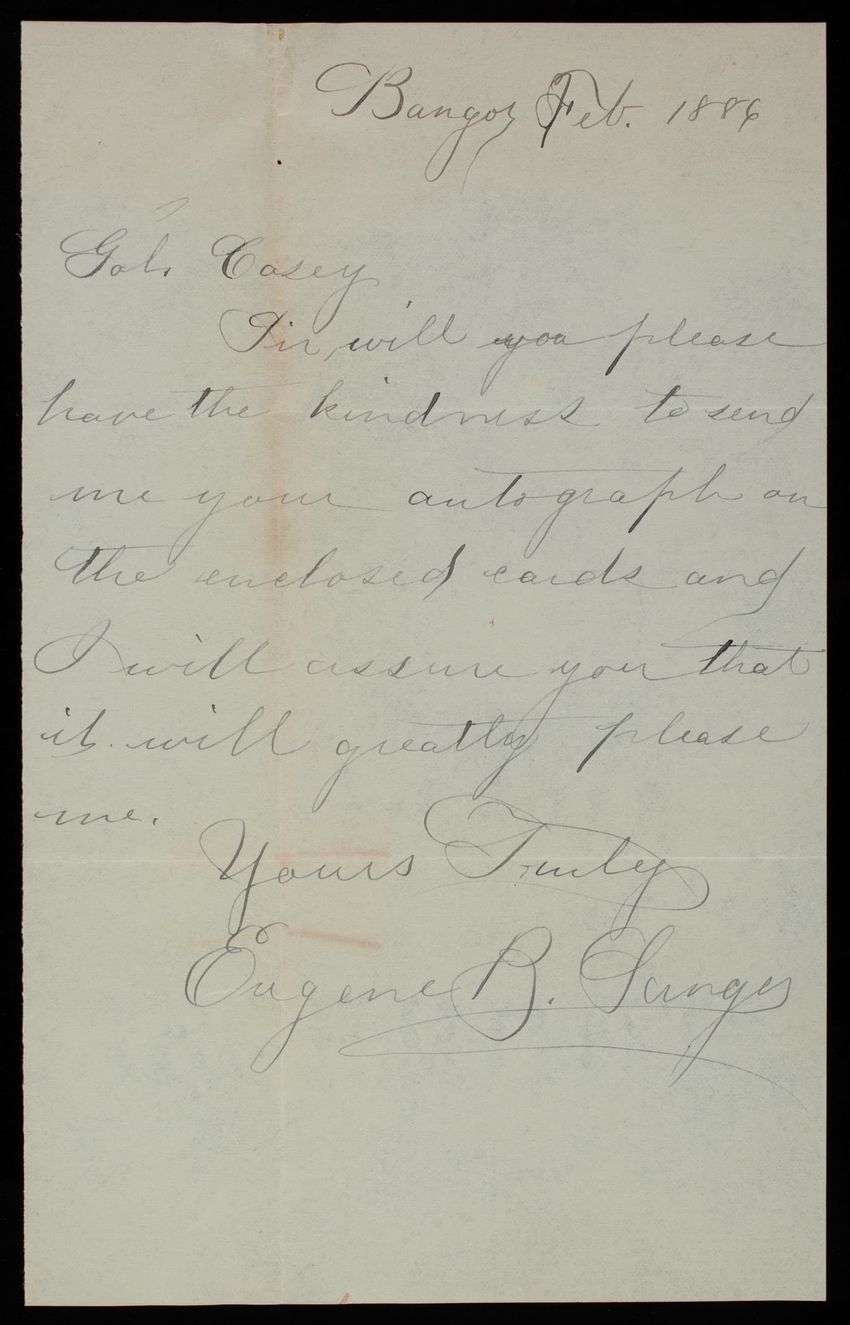 Bangor Feb. 1886
Gol. Casey
Sir will you please
have the kindness to send
me your autograph on
the enclosed cards and
I will assure you that
it will greatly please
me.
Yours Truly
Eugene B. Sanger